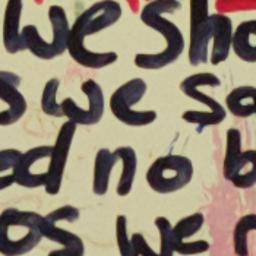 we sho
s we so
ed no b
os we r